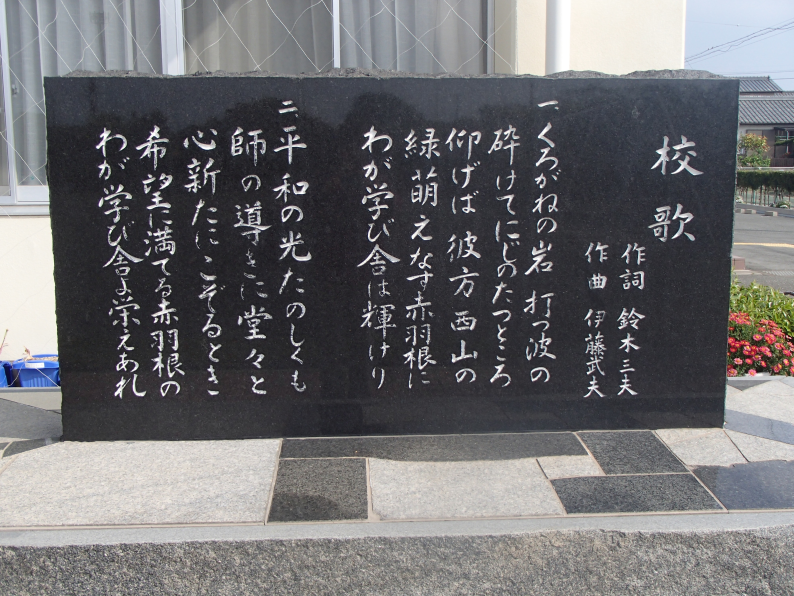 校歌
作詞 鈴木三夫
作曲 伊藤武夫
一、くろがねの岩 打つ波の
砕けてにじのたつところ
仰げば彼方西山の
緑萌えなす赤羽根に
わが学び舎は輝けり
二、平和の光たのしくも
師の導きに堂々と
心新たにこぞるとき
希望に満てる赤羽根の
わが学び舎よ栄えあれ